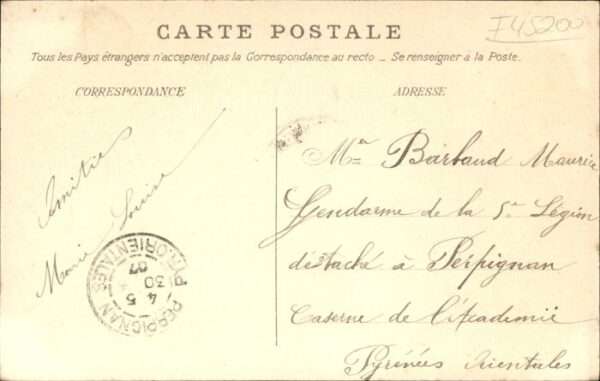 CARTE POSTALE
F45200
Tous les Pays étrangers n'acceptent pas la Correspondance au recto _ Se renseigner à la Poste.
CORRESPONDANCE
ADRESSE
Amitiés
Marie Louise
PERPIGNAN PYR. ORIENTALES
4 5
30
07
Mr Barbaud Maurice
Gendarme de la 5e Légion
détaché à Perpignan
Caserne de l'Académie
Pyrénées Orientales